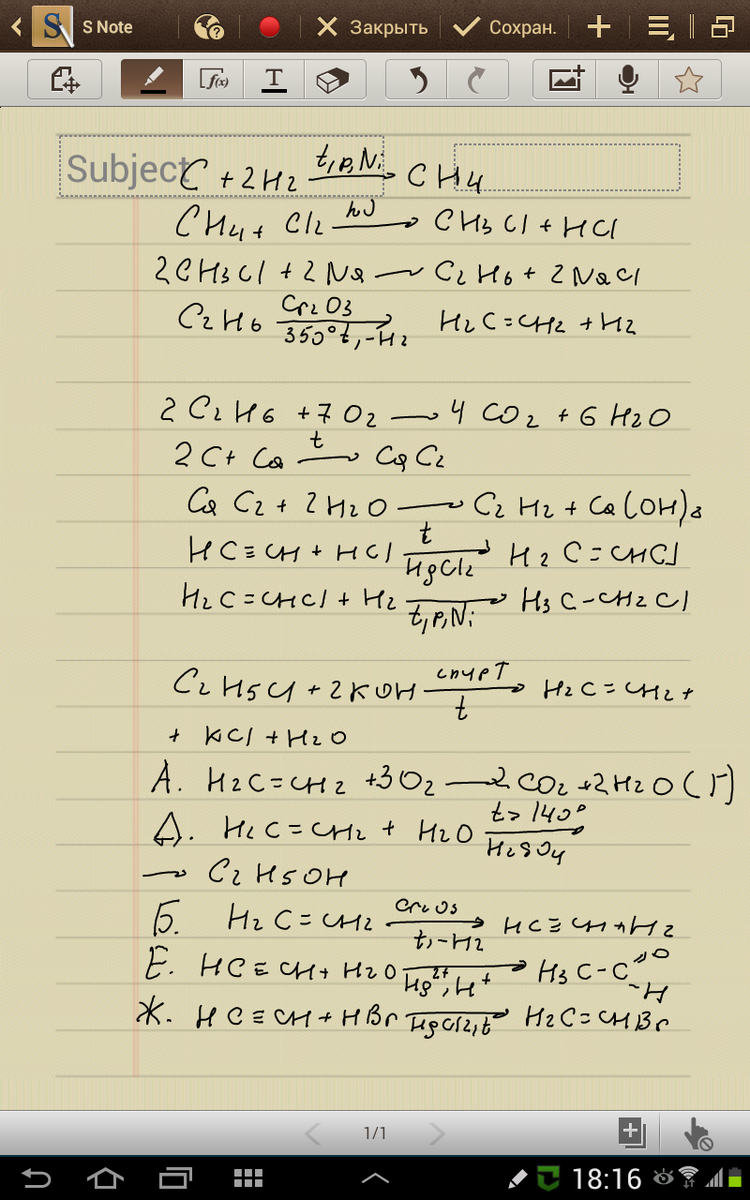 S Note Закрыть Сохран.
f(x) T
Subject
C + 2H2 t,p,Ni → CH4
CH4 + Cl2 hν → CH3Cl + HCl
2CH3Cl + 2Na — C2H6 + 2NaCl
C2H6 Cr2O3 → 350°t,-H2 H2C=CH2 + H2
2C2H6 + 7O2 → 4CO2 + 6H2O
2C + Ca t → CaC2
CaC2 + 2H2O → C2H2 + Ca(OH)2
HC≡CH + HCl t → HgCl2 H2C=CHCl
H2C=CHCl + H2 → t,p,Ni H3C-CH2Cl
C2H5Cl + 2KOH спирт → t H2C=CH2 +
+ KCl + H2O
А. H2C=CH2 + 3O2 → 2CO2 + 2H2O (Г)
Д. H2C=CH2 + H2O t>140° H2SO4
→ C2H5OH
Б. H2C=CH2 Cr2O3 → t,-H2 HC≡CH + H2
Е. HC≡CH + H2O → Hg2+, H+ H3C-C=O
-H
Ж. HC≡CH + HBr → HgCl2,t H2C=CHBr
1/1
18:16